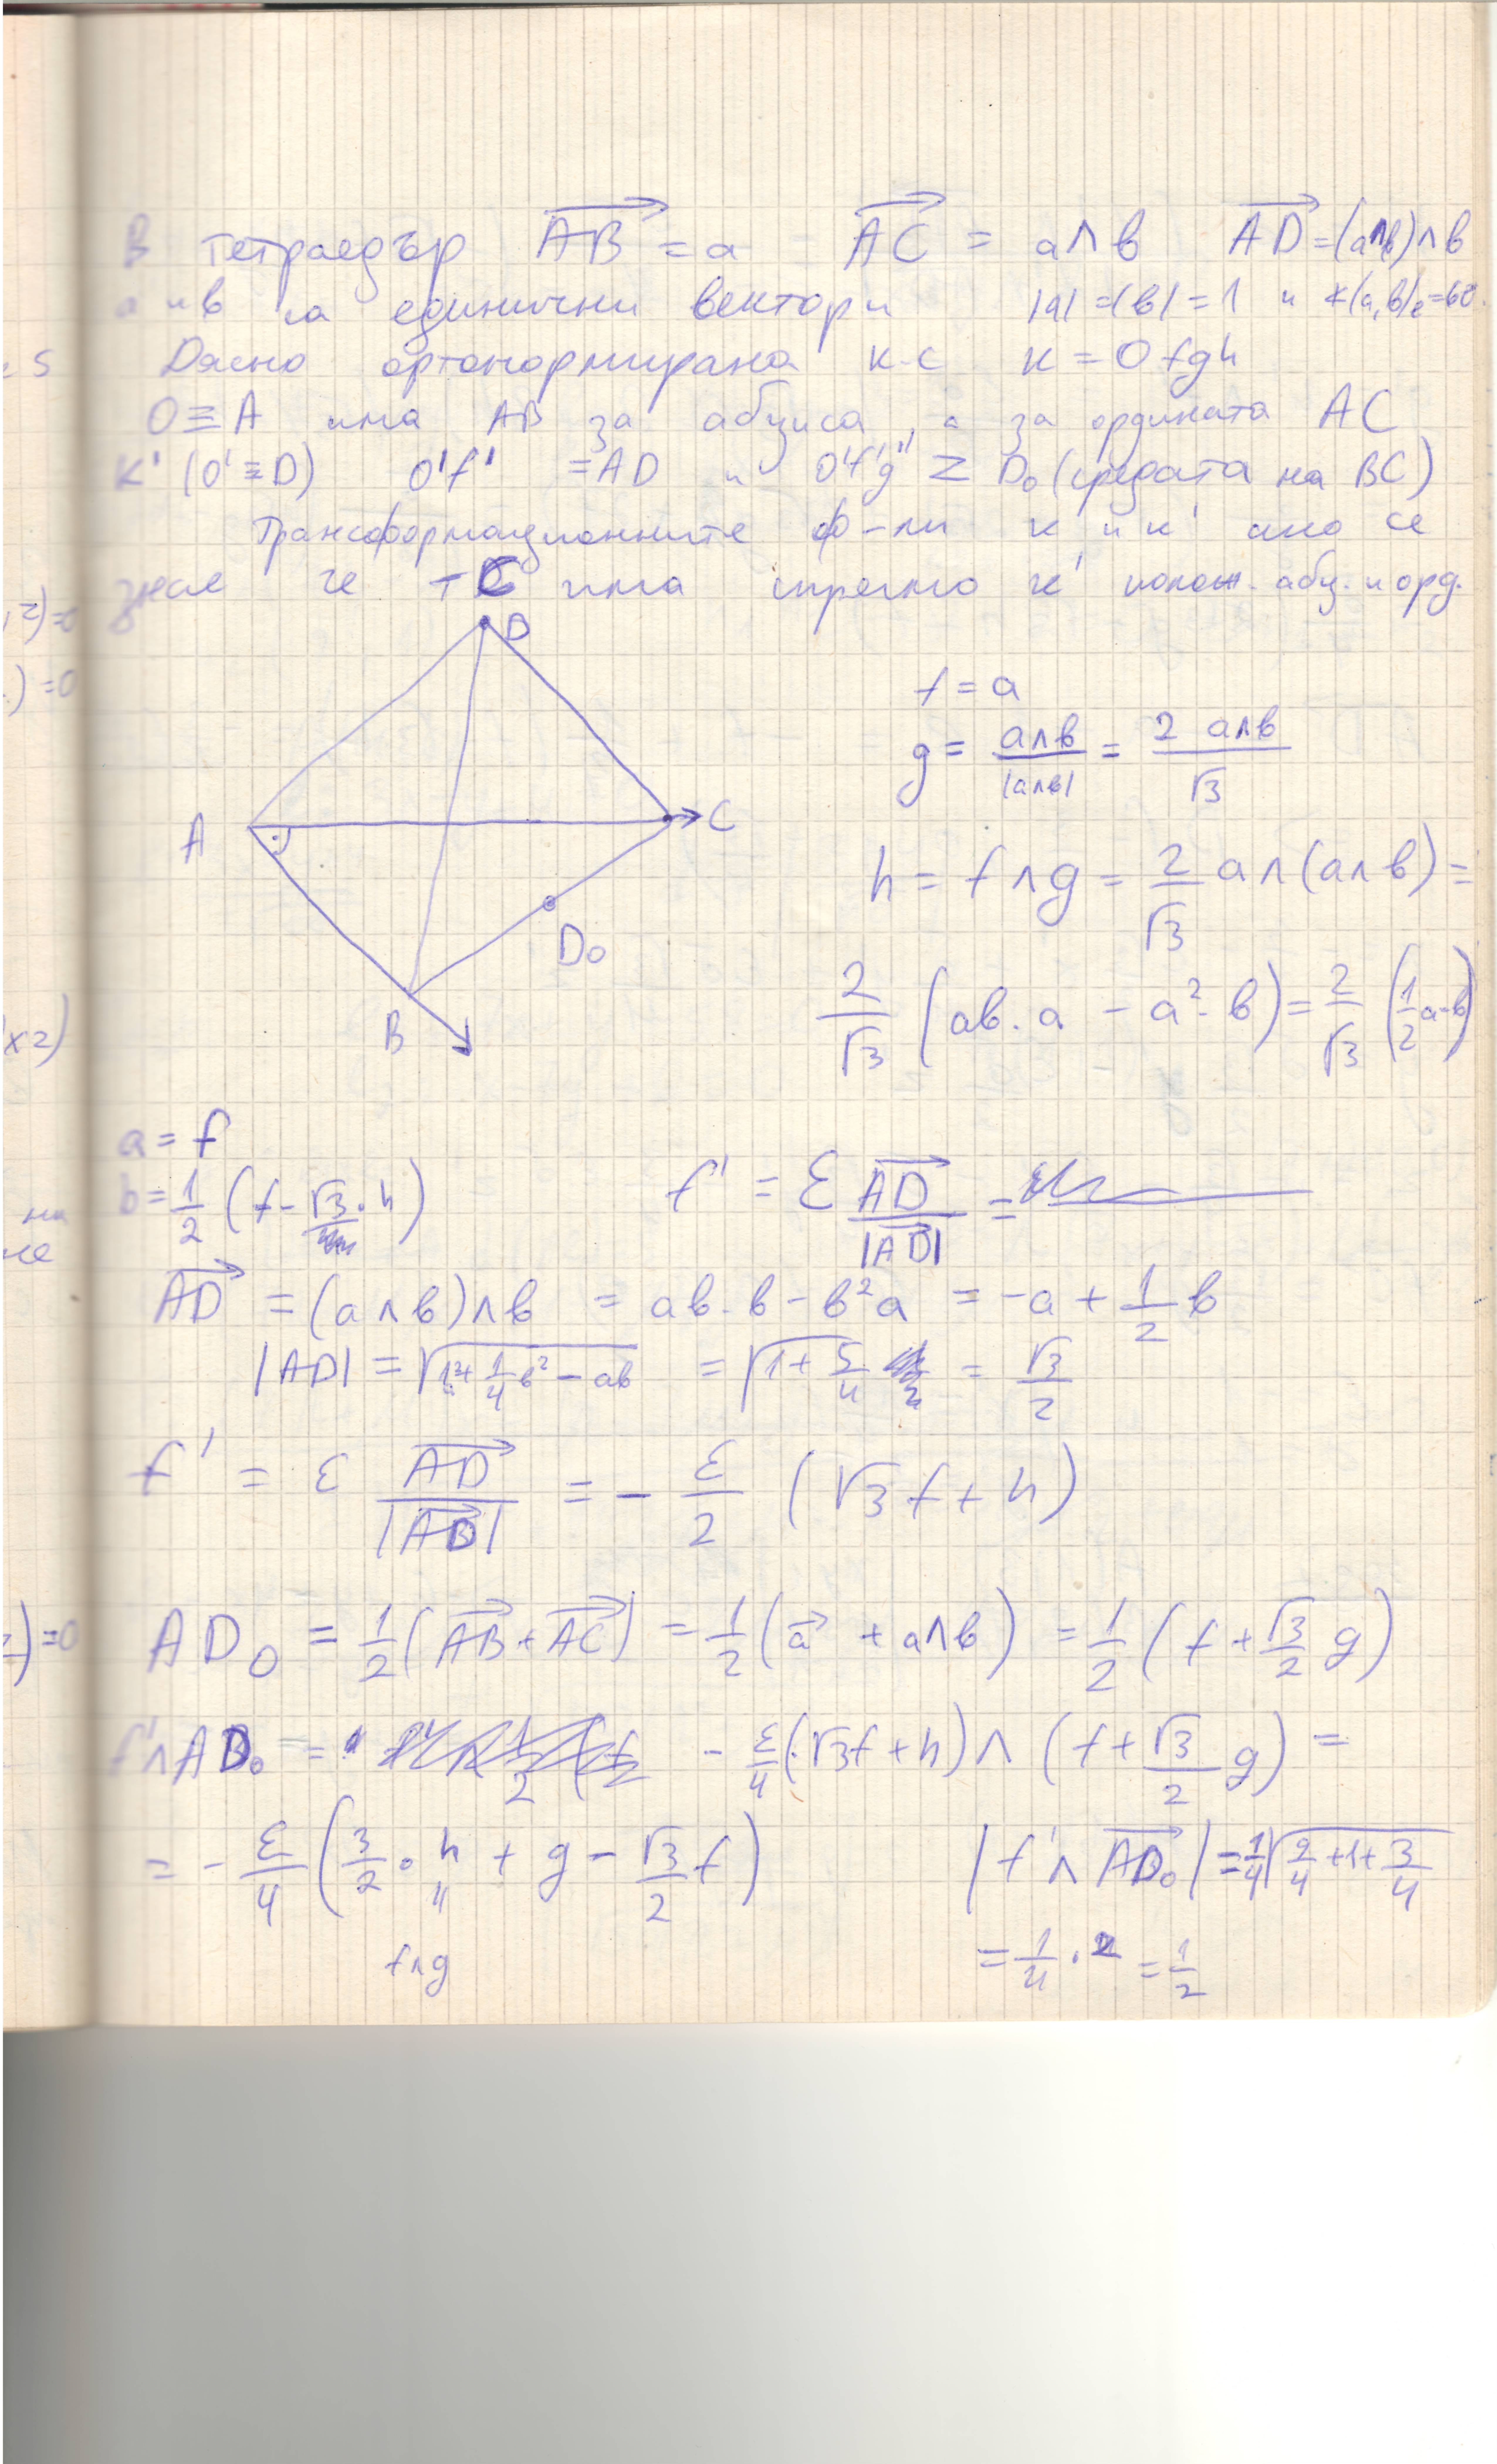 В тетраедър AB = a AC = a∧b AD = (a∧b)∧b
a и b са единични вектори |a|=|b|=1 и ∢(a,b)=60.
Дясно ортонормирана к.с K = Ofgh
O≡A има AB за абциса, а за ордината AC
K' (O'≡D) O'f' = AD и O'f'g' Z D₀ (средата на BC)
Трансформационните ф-ли K и K' ако се
знае че т C има спрямо K' полож. абц. и орд.
D
A
C
D₀
B
f = a
g = a∧b / |a∧b| = 2 a∧b / √3
h = f∧g = 2/√3 a∧(a∧b) =
2/√3 (ab.a - a².b) = 2/√3 (1/2 a-b)
a = f
b = 1/2 (f - √3.h)
f' = ε AD / |AD| =
AD = (a∧b)∧b = ab.b - b²a = -a + 1/2 b
|AD| = √(1²+1/4 b² - ab) = √(1+ 5/4 = √3/2
f' = ε AD / |AD| = - ε/2 (√3 f + h)
AD₀ = 1/2 (AB + AC) = 1/2 (a + a∧b) = 1/2 (f + √3/2 g)
f'∧AD₀ = - ε/4 (√3f + h)∧(f + √3/2 g) =
= - ε/4 (3/2 . h + g - √3/2 f)
f∧g
|f'∧AD₀| = 1/4 √(9/4 + 1 + 3/4)
= 1/4 . 2 = 1/2